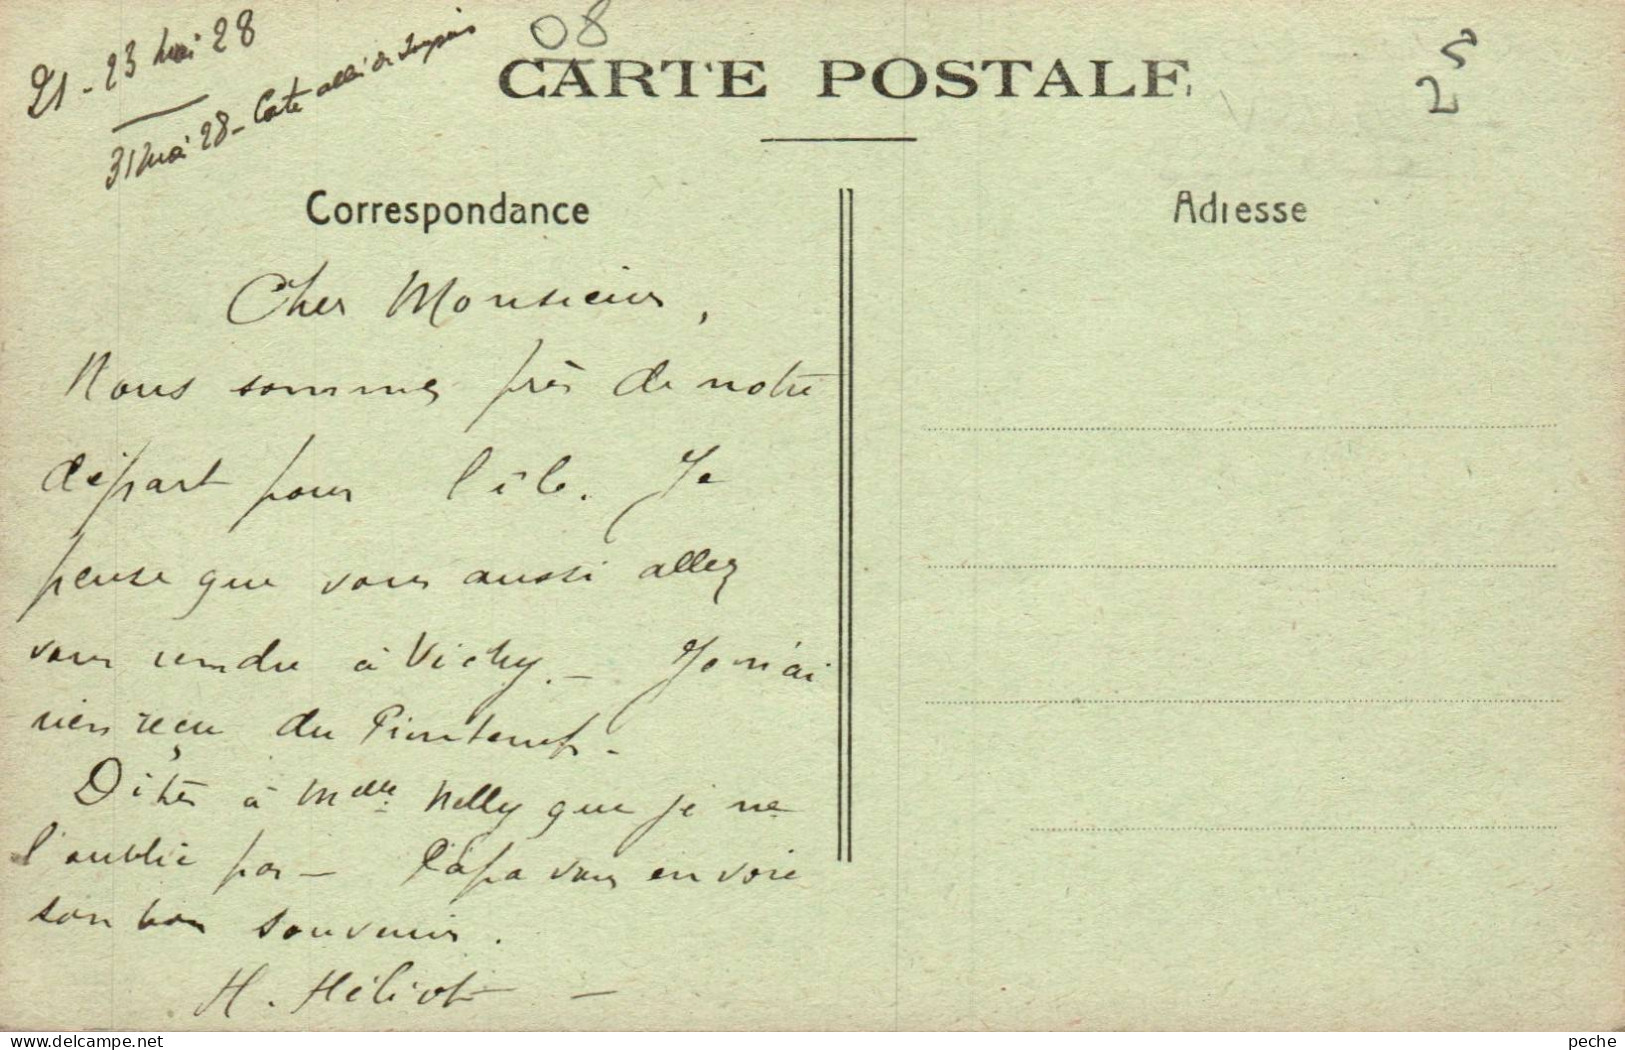 21-23 Mai 28
31 Mai 28 - Carte
08
CARTE POSTALE
25
Correspondance
Adresse
Cher Monsieur,
Nous sommes près de notre
départ pour l'île. Je
pense que vous aussi allez
vous rendre à Vichy. - Je n'ai
rien reçu du
Dites à Melle Nelly que je ne
l'oublie pas - Papa vous envoie
son bon souvenir.
H. Héliot -
peche